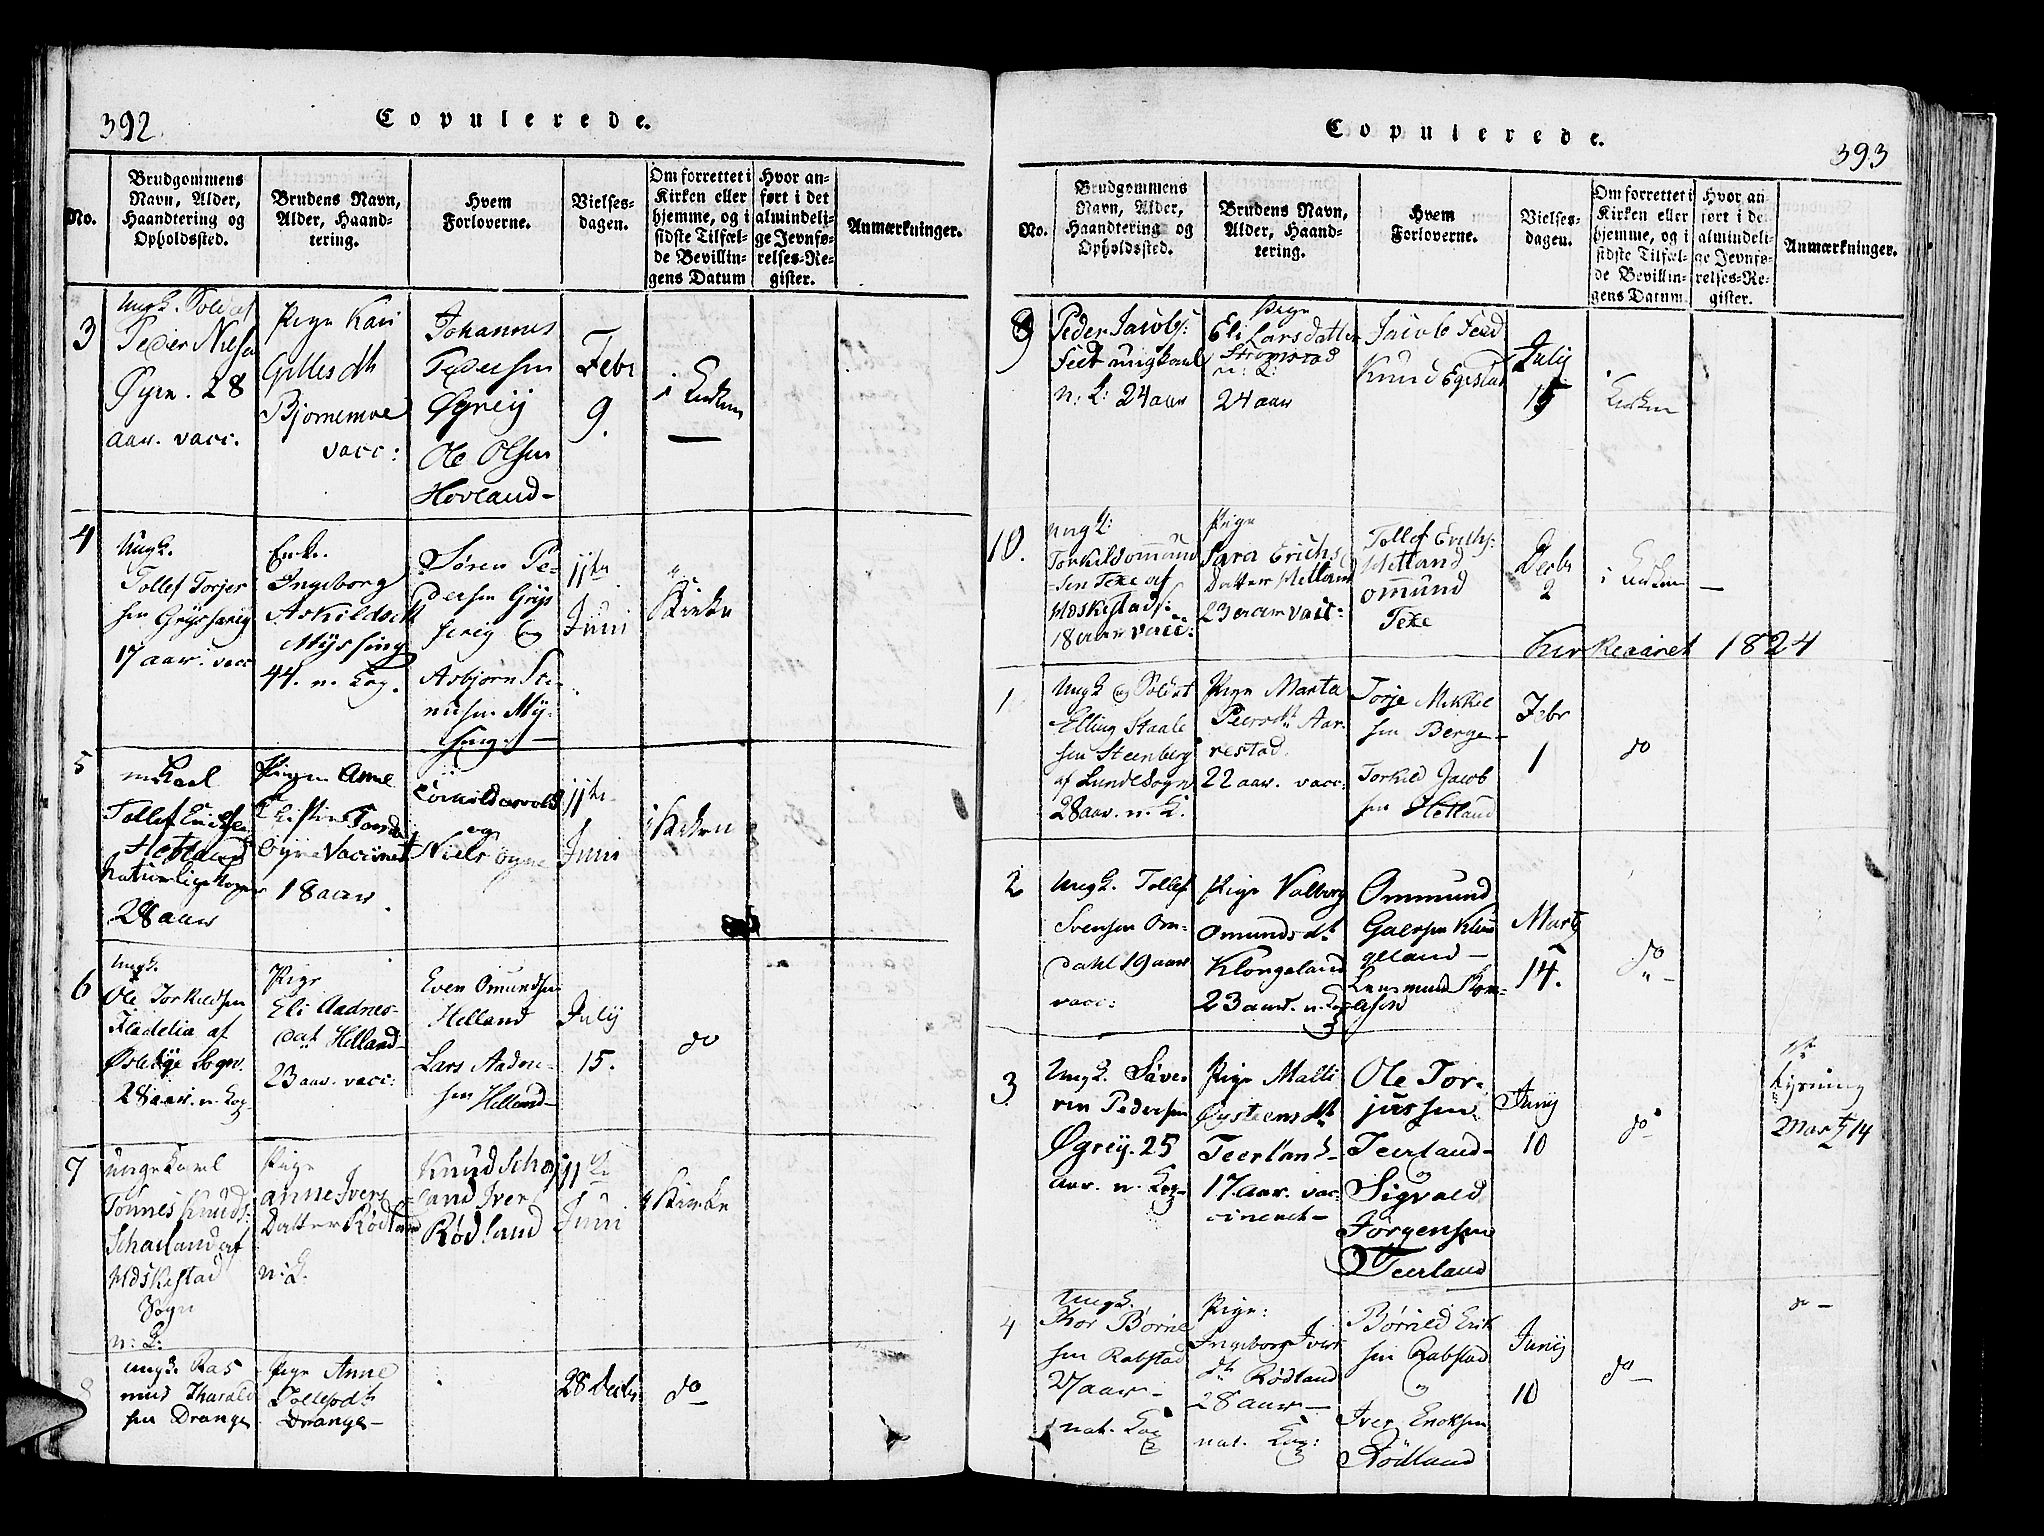 392.
Copulerede.
No.
Brudgommens
Navn, Alder,
Haandtering og
Opholdssted.
Brudens Navn,
Alder, Haand-
tering.
Hvem
Forloverne.
Vielses-
dagen.
Om forrettet i
Kirken eller
hjemme, og i
sidste Tilfæl-
de Bevillin-
gens Datum
Hvor an-
ført i det
almindeli-
ge Jevnfø-
relses-Re-
gister.
Anmærkninger.
3
Ungk. Soldat
Peder Nilsen
Øyrn. 28
aar. vacc.
Pige Kari
Gillesdtr
Bjornemoe
vacc:
Johannes
Pedersen
Øgreij
Ole Olsen
Hovland-
Febr
9.
i Kirken
4
Ungk.
Tollef Torjes
sen Gryssereig
17 aar. vacc
Enke.
Ingeborg
Askildsdtr
Myssing
44. n. Kop.
Søren Pe-
dersen Grys
sereig og
Asbjørn Ste-
nsen My-
sing
11te
Juni
Kirke
5
unkarl
Tollef Erichsen
Hetland
Naturlige Koper
28 aar
Pigen Anne
Vaccineret
18 aar
og
Niels
11te
Juni
i Kirken
6
ungk.
Ole Torkildsen
af
Sogn.
28 aar. n. Kop-
Pige
Eli Aadnes-
dat Helland-
23 aar. vacc:
Even Omundsen
Helland
Lars Aadne-
sen Helland-
Julij
15.
do
7
ungekarl
Tønnes Knuds:
Scharland af
Hdskestad
Sogn
n: K:
Pige
anne Ivers
Datter Rødland
n: K.
Knud Schar
land Iver
Rødland
11te
Juni
i Kirke
8
ungk. Ras
mus Tharald
sen Drange
Pige Anne
Tollefsdtr
Drange-
28 Decbr
do
393
Copulerede.
No.
Brudgommens
Navn, Alder,
Haandtering og
Opholdssted.
Brudens Navn,
Alder, Haand-
tering.
Hvem
Forloverne.
Vielses-
dagen.
Om forrettet i
Kirken eller
hjemme, og i
sidste Tilfæl-
de Bevillin-
gens Datum
Hvor an-
ført i de
almindeli-
ge Jevnfø-
relses-Re-
gister.
Anmærkninger.
9
Peder Jacobs:
Feed ungkarl
n: K: 24 aar
Pige
Eli Larsdatter
Strømstad
n: K:
24 aar
Jacob Feed
Knud Egestad
Julij
15
i
Kirken
10.
ungk:
Torkild Ommund
-sen Texe af
Hdskestads:
18 aar vacc:
Pige
Sara Erichs
Datter Hetland
23 aar vacc:
Tollef Erichs:
Hetland
ommund
Texe
Decbr
2
i Kirken
Kirkeaaret 1824
1
Ungk og Soldat
Elling Staale
sen Steenberg
af Lunde Sogn
28 aar. n. K.
Pige Marta
Peersdtr Aar-
restad.
22 aar. vacc:
Torje Mikkel
sen Berge-
Torkild Jacob
sen Hetland
Febr
1
do
2
Ungk. Tollef
Svensen Om-
dahl 19 aar
vacc:
Pige Valborg
Omundsdtr
Klongeland
23 aar. n. Kop
Ommund
Gaersen Klun
geland-
Marty
14.
do
3
Ungk. Søve-
ren Pedersen
Øgreij. 25
aar. n. Kop-
Pige Malli
Øysteensdtr
Teerland.
17 aar. vac-
cineret-
Ole Tor-
jussen
Teerland-
Sigvald
Jørgensen
Teerland
Junij
10
do
1ste
Lysning
Marty 14
4
Ungk.
Thor Børild
sen Rabstad
27 aar-
nat. Kop
Pige:
Ingeborg Iver
dtr Rødland
28 aar-
nat. Kop:
Børild Erik
sen Rabstad
Iver Enoksen
Rødland
Junij
10
do
do-